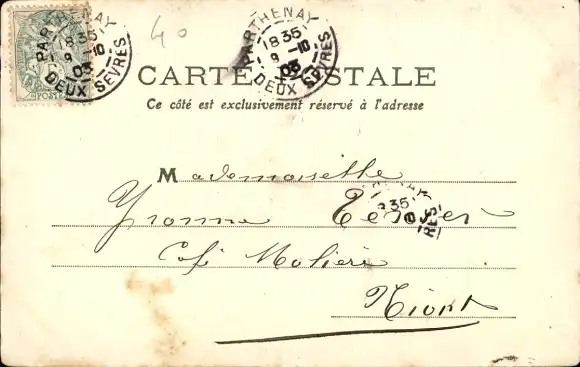 PARTHENAY
1835
9 -10
03
DEUX SEVRES
POSTES
40
PARTHENAY
1835
9 -10
03
DEUX SEVRES
CARTE POSTALE
Ce côté est exclusivement réservé à l'adresse
Mademoiselle
Yvonne
Café Molière
Niort